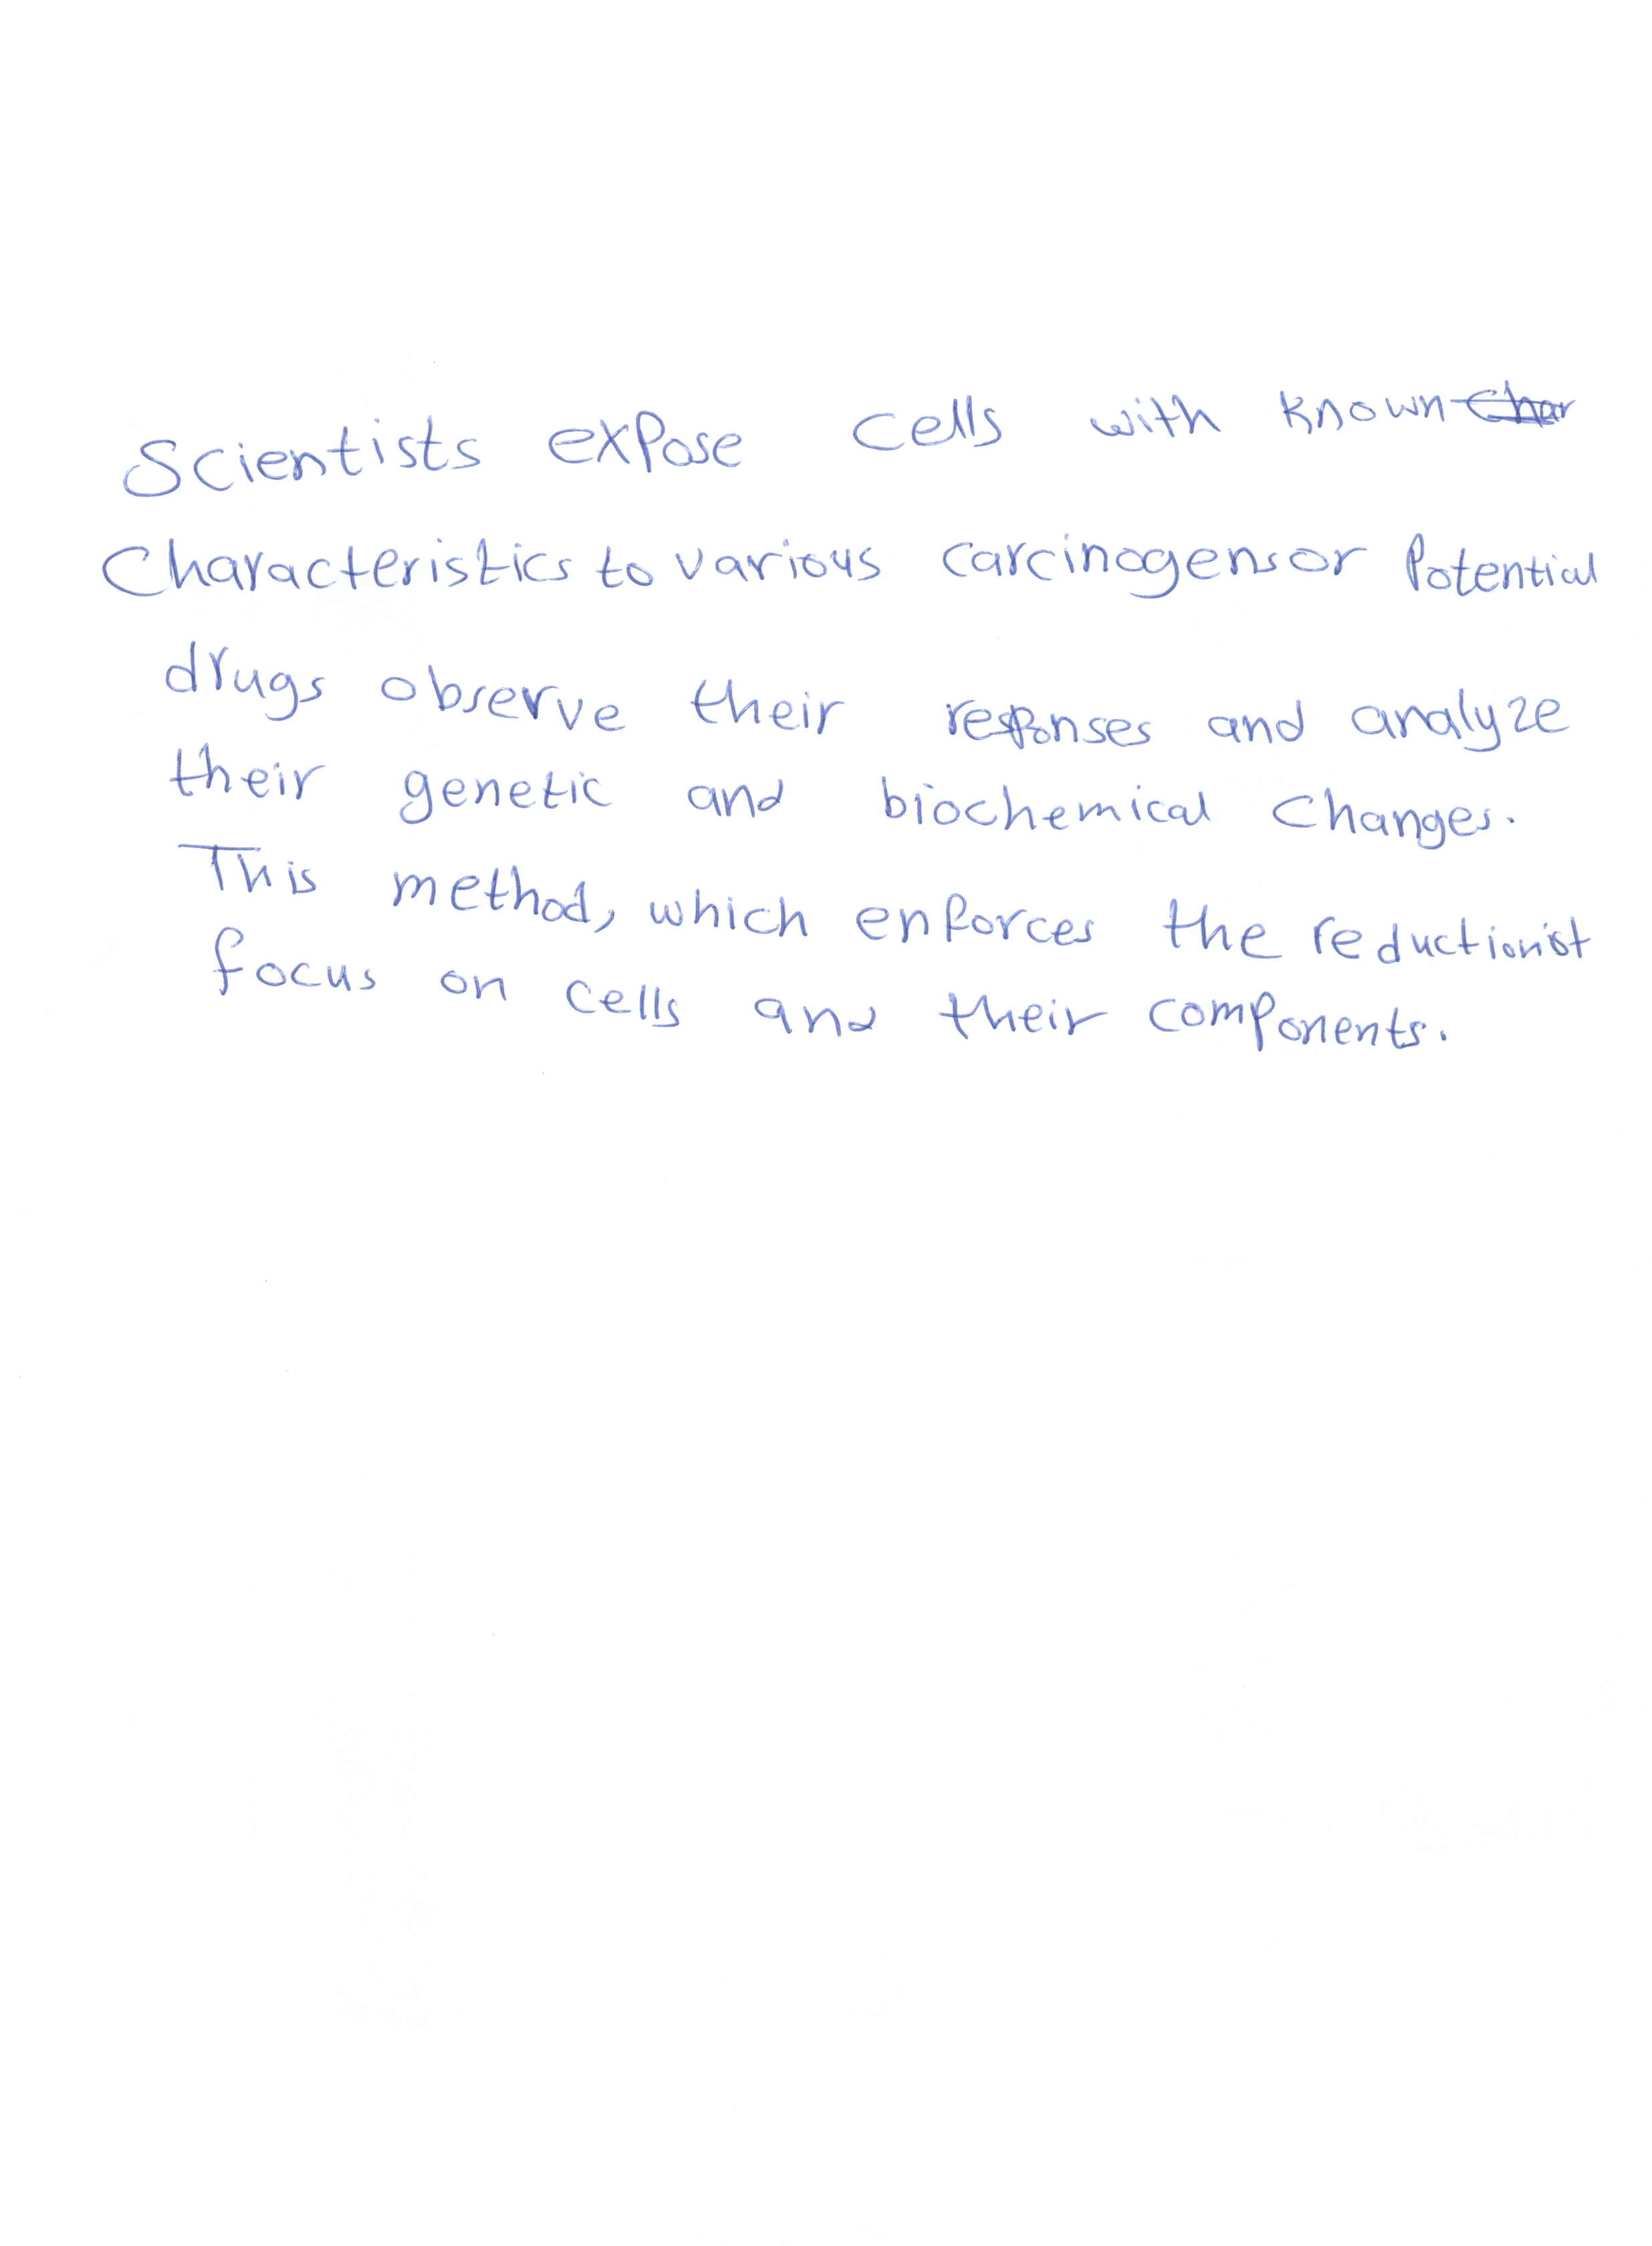 Scientists expose cells with known Char
Characteristics to various carcinogens or Potential
drugs observe their responses and analyze
their genetic and biochemical changes.
This method, which enforces the reductionist
focus on cells and their components.